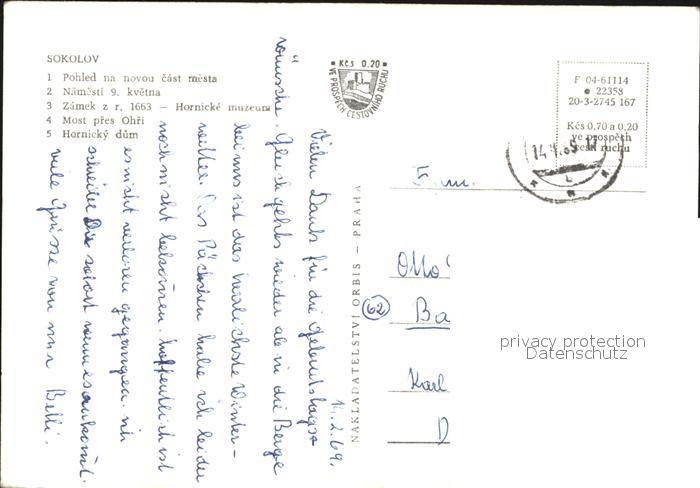 SOKOLOV
1 Pohled na novou část města
2 Náměstí 9. května
3 Zámek z r. 1663 — Hornické muzeum
4 Most přes Ohři
5 Hornický dům
Kčs 0.20
VE PROSPĚCH CESTOVNÍHO RUCHU
F 04-61114
22358
20-3-2745 167
Kčs 0,70 a 0,20
ve prospěch
cest. ruchu
NAKLADATELSTVÍ ORBIS — PRAHA
14.2.69.
Vielen Dank für die Geburtstags-
wünsche. Gleich gehts wieder ab in die Berge
bei uns ist das herrlichste Winter-
wetter. Das Päckchen habe ich leider
noch nicht bekommen. hoffentlich ist
es nicht verloren gegangen. ich
schreibe Dir sofort wenn es ankommt.
viele Grüsse von
Fam.
Otto
62
Ba
Karl
D
privacy protection
Datenschutz